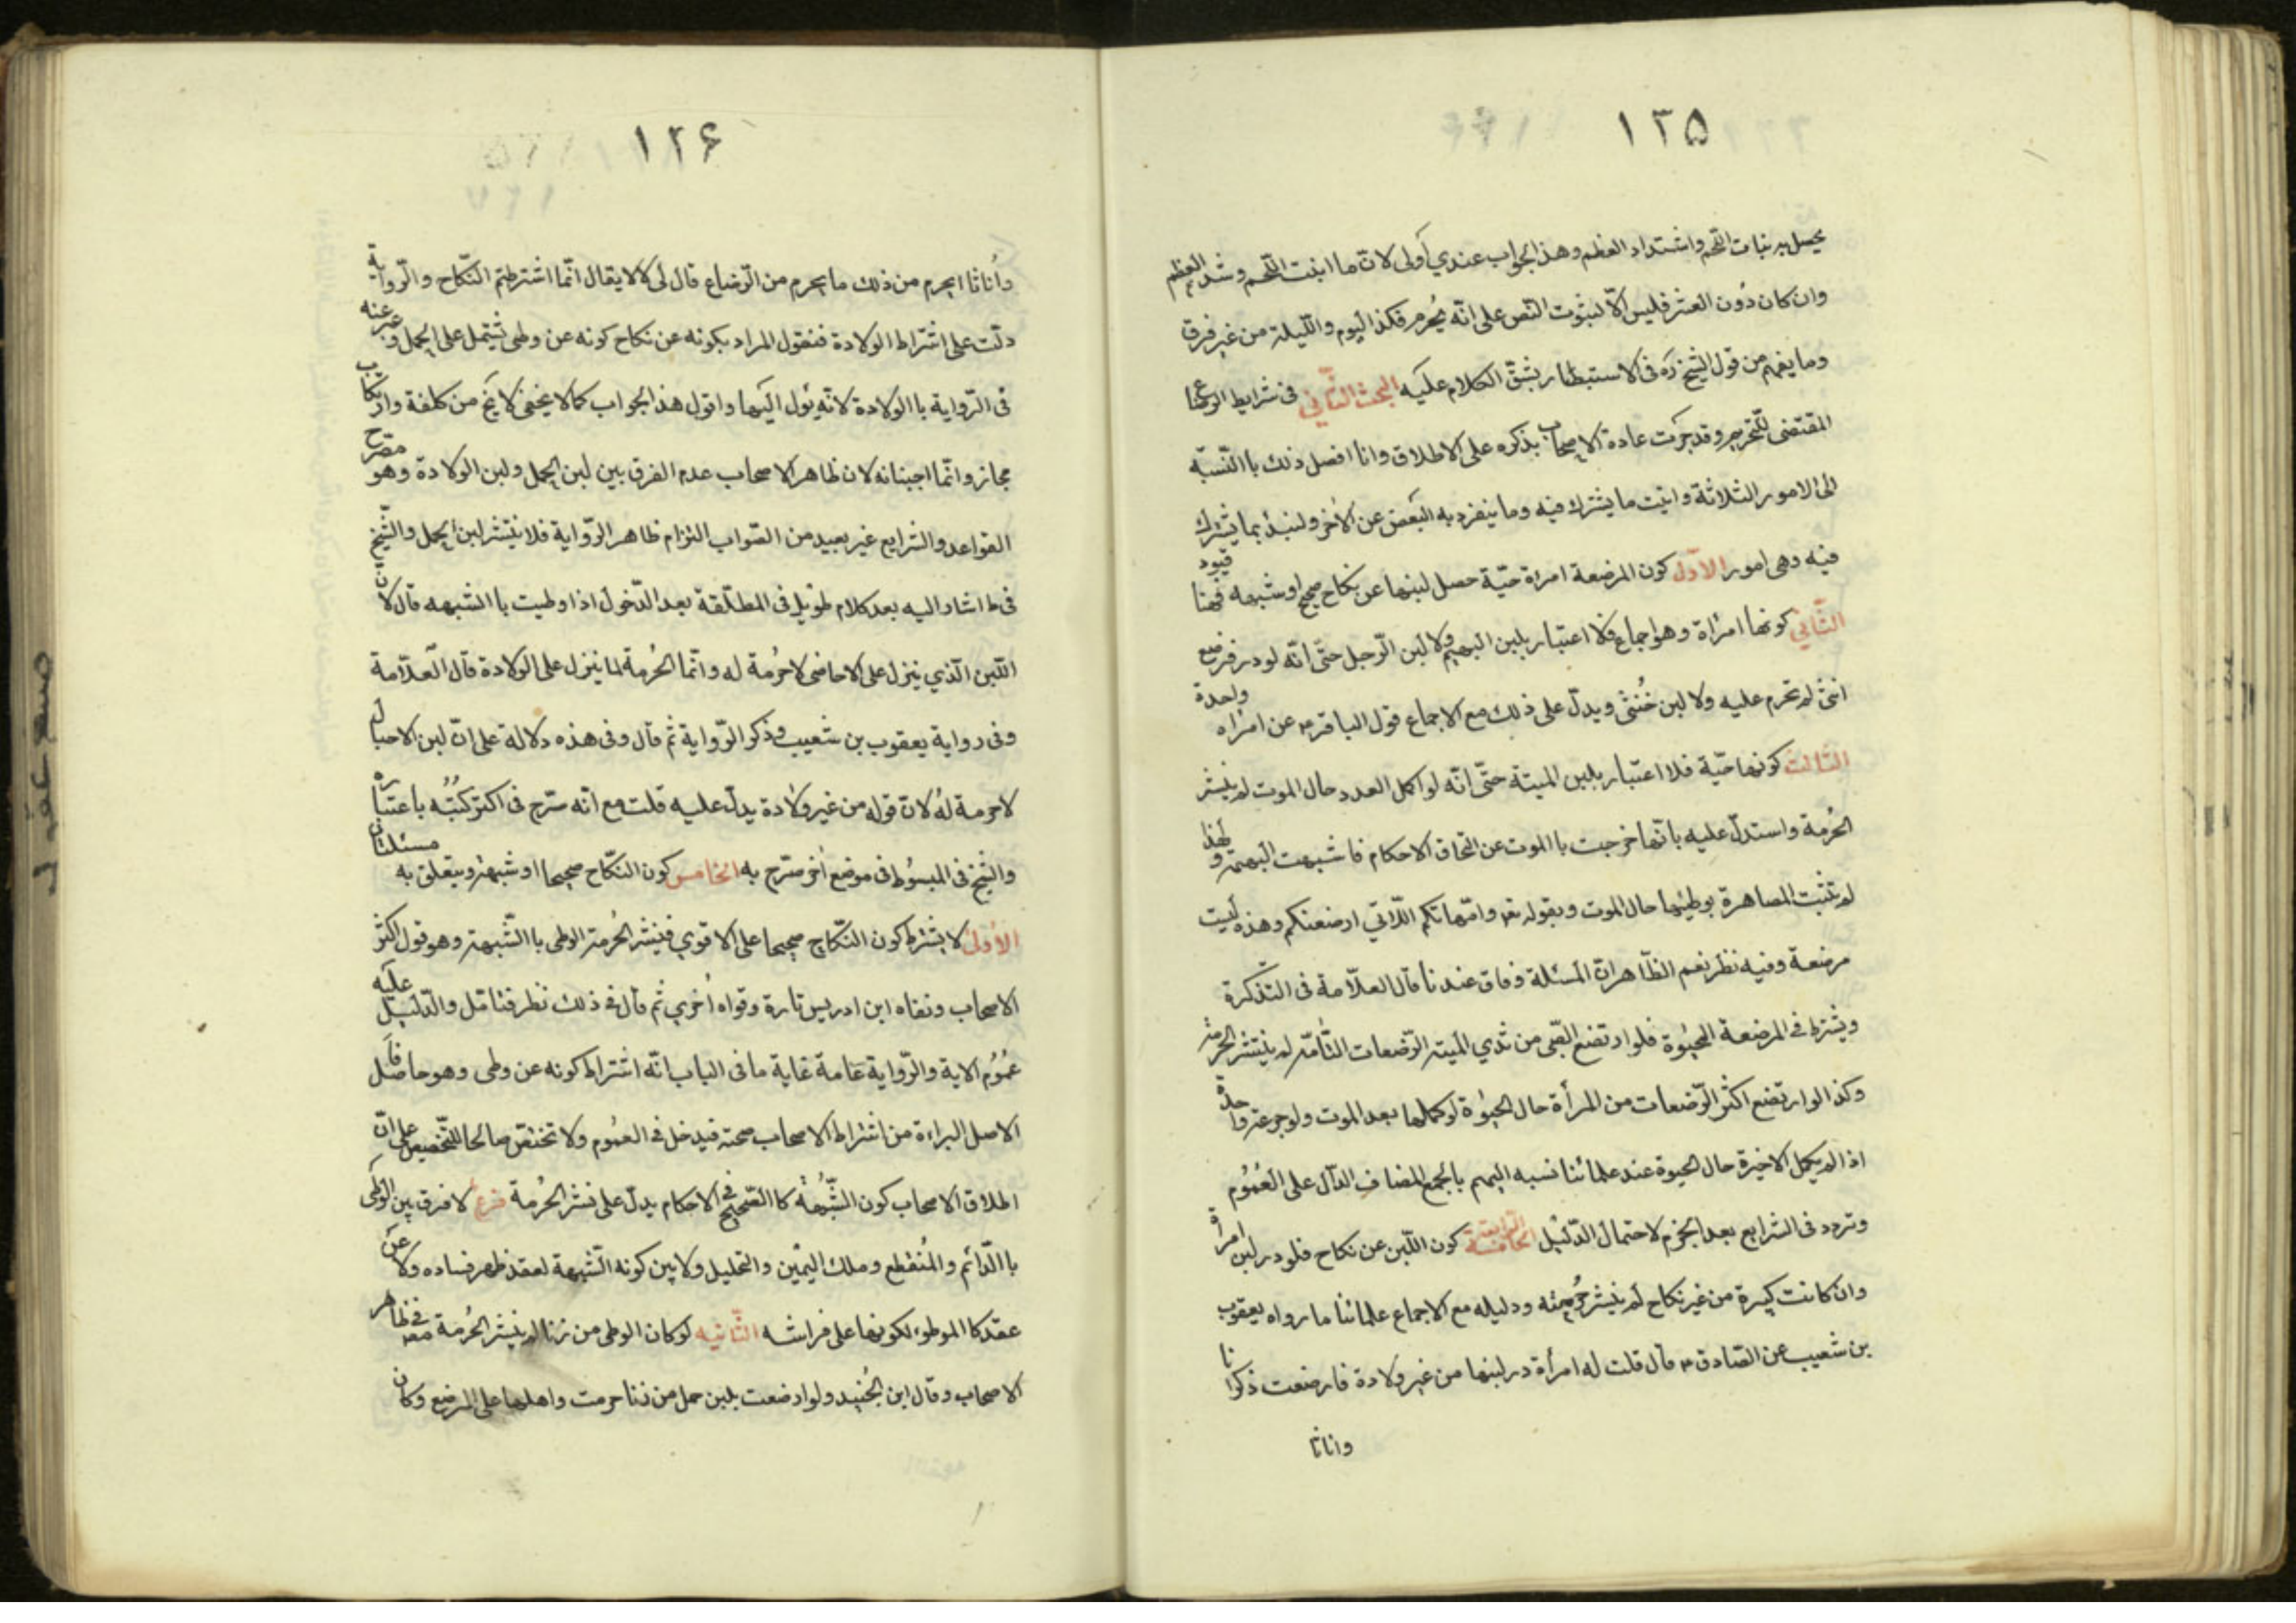 ۱۲۵
يحصل به نبات اللحم واشتداد العظم وهذا الجواب عندي أولى لانّ ما انبت اللحم وشد العظم
وان كان دُون العشر فليس الّا لثبوت النّص على انّه يُحرم فكذا اليوم والليلة من غير فرق
وما يفهم من قول الشيخ ره فى الاستبطار يشقّ الكلام عليه البحث الثّاني فى شرايط الرضاع
المقتضى للتحريم وقد جرت عادة الاصحاب بذكره على الاطلاق وانا افصل ذلك باالنّسبة
الى الامور الثلاثة واثبت ما يشترك فيه وما ينفرد به البعض عن الأخر ولنبدُ بما يشترك
فيه وهى امور الأول كون المرضعة امراة حيّة حصل لبنها عن نكاح صحيح او شبهه فهنا قيود
الثّاني كونها امراة وهو اجماع فلا اعتبار بلبن البهيم ولا لبن الرّجل حتّى انّه لو در فرضع
انثى لم تحرم عليه ولا لبن خُنثى ويدلّ على ذلك مع الاجماع قول الباقر ع عن امراه واحدة
الثالث كونها حيّة فلا اعتبار بلبن الميتة حتّى انّه لو اكمل العدد حال الموت لم ينشر
الحُرمة واستدلّ عليه بانّها خرجت باالموت عن التحاق الاحكام فاشبهت البهيمة ولهذا
لم تثبت المصاهرة بوطئها حال الموت وبقوله تع وامّهاتكم اللّاتي ارضعنكم وهذه ليست
مرضعة وفيه نظر نعم الظّاهر انّ المسئلة وفاق عندنا قال العلّامة فى التذكرة
ويشترط فى المرضعة الحيٰوة فلو ارتضع الصّبى من ثدي الميته الرّضعات التّامّة لم ينتشر الحرمة
وكذا لو ارتضع اكثر الرّضعات من المرأة حال الحيٰوة لو كملها بعد الموت ولو جرعة واحدة
اذا لم يكمل الاخيرة حال الحيوة عند علمائنا نسبه اليهم بالجمع المضاف الدّال على العُمُوم
وتردد فى الشرايع بعد الجزم لاحتمال الدّليل الرابعة الخامسة كون اللّبن عن نكاح فلو در لبن امراة
وان كانت كبيرة من غير نكاح لم ينشر حُرمته ودليله مع الاجماع علمائنا ما رواه يعقوب
بن شعيب عن الصّادق ع قال قلت له امرأة در لبنها من غير ولادة فارضعت ذكرانا
واناثا
۱۲۶
وأناثا ايحرم من ذلك ما يحرم من الرّضاع قال لى لا لا يقال انّما اشترطتم النّكاح والرّواية
دلّت على اشتراط الولادة فنقول المراد بكونه عن نكاح كونه عن وطى يشتمل على الحمل وعبر عنه
فى الرّواية باالولادة لانّه يئول اليها واقول هذا الجواب كما لا يخفى لا يخ من كلفة وارتكاب
مجاز وانّما اجبنا به لان ظاهر الاصحاب عدم الفرق بين لبن الحمل ولبن الولادة وهو مصّرح
القواعد والشرايع غير بعيد من الصّواب التزام ظاهر الرّواية فلا ينتشر لبن الحمل والشّيخ
فى ط اشار اليه بعد كلام طويل فى المطلّقة بعد الدّخول اذا وطيت باالشبهه قال لانّ
اللّبن الّذي ينزل على الاحاضى لا حُرمة له وانّما الحُرمة لما ينزل على الولادة قال العلّامة
وفى رواية يعقوب بن شعيب وذكر الرّواية ثم قال وفى هذه دلالة على انّ لبن الاحبال
لا حرمة لهُ لان قوله من غير ولادة يدلّ عليه قلت مع انّه صّرح فى اكثر كتُبُه باعتباره
والشّيخ فى المبسُوط فى موضع أخر صّرح به الخامس كون النكّاح صحيحا او شبهة ويتعلق به مسئلتان
الأولى لا يشترط كون النكّاح صحيحا على الاقوي فينشر الحُرمة الوطى باالشّبهة وهو قول اكثر
الاصحاب ونفاه ابن ادريس تارة وقواه أُخري ثم قال فى ذلك نظر فتامّل والدّليل عليه
عُمُوم الاية والرّواية عامة غاية ما فى الباب انّه اشتراط كونه عن وطى وهو حاصل فا
الاصل البراءة من اشتراط الاصحاب صحته فيدخل فى العمُوم ولا تختص صالحا للتخصيص على انّ
اطلاق الاصحاب كون الشّبُهة كاالصّحيح فى الاحكام يدلّ على نشر الحُرمة فرع لا فرق بين الوطى
باالدّائم والمُنقطع وملك اليمين والتحليل ولا بين كونه الشّبهة لعقد ظهر فساده ولا عن
عقد كاالموطوء لكونها على فراشه الثّانيه لو كان الوطى من زنا لم ينشر الحُرمة فى ظاهر
الاصحاب وقال ابن الجُنيد ولو ارضعت بلبن حمل من زنا حرمت واهلها على المرضع وكان